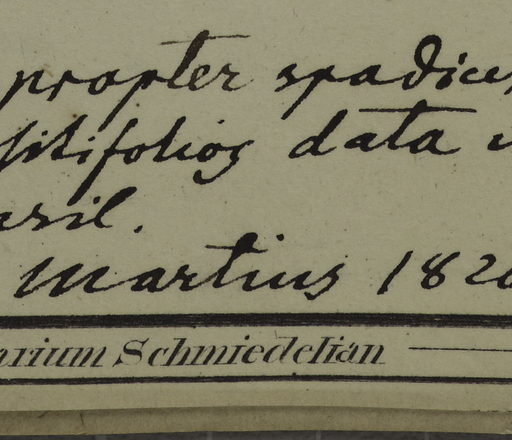 propter spadices
sitifolios data
asil.
Martius 182
arium Schmiedelian